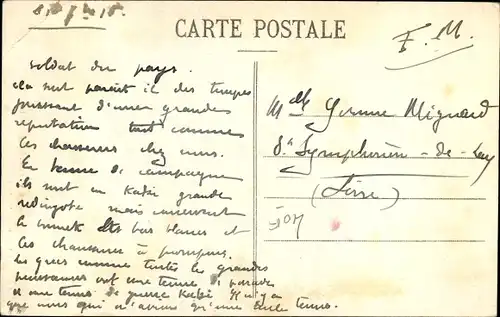 CARTE POSTALE
F. M.
soldat du pays.
ils sont paraît il des troupes
jouissant d'une grande
réputation tout comme
les chasseurs chez nous.
En tenue de campagne
ils sont en Kaki grande
redingote mais conservent
le bonnet bas blancs et
les chaussures à pompons.
Les grecs comme toutes les grandes
puissances ont une tenue de parade
et une tenue de guerre Kaki Il n'y a
que nous qui n'avions qu'une seule tenue.
Mlle Yvonne Mignard
St Symphorien-de-Lay
(Loire)